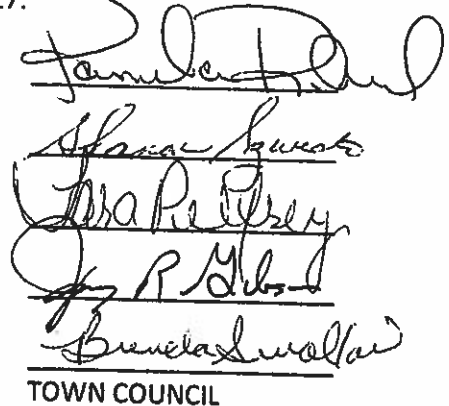 27.
Pamela
Sharon
Lisa Pullsey
Jay R Gibson
Brenda Swallow
TOWN COUNCIL